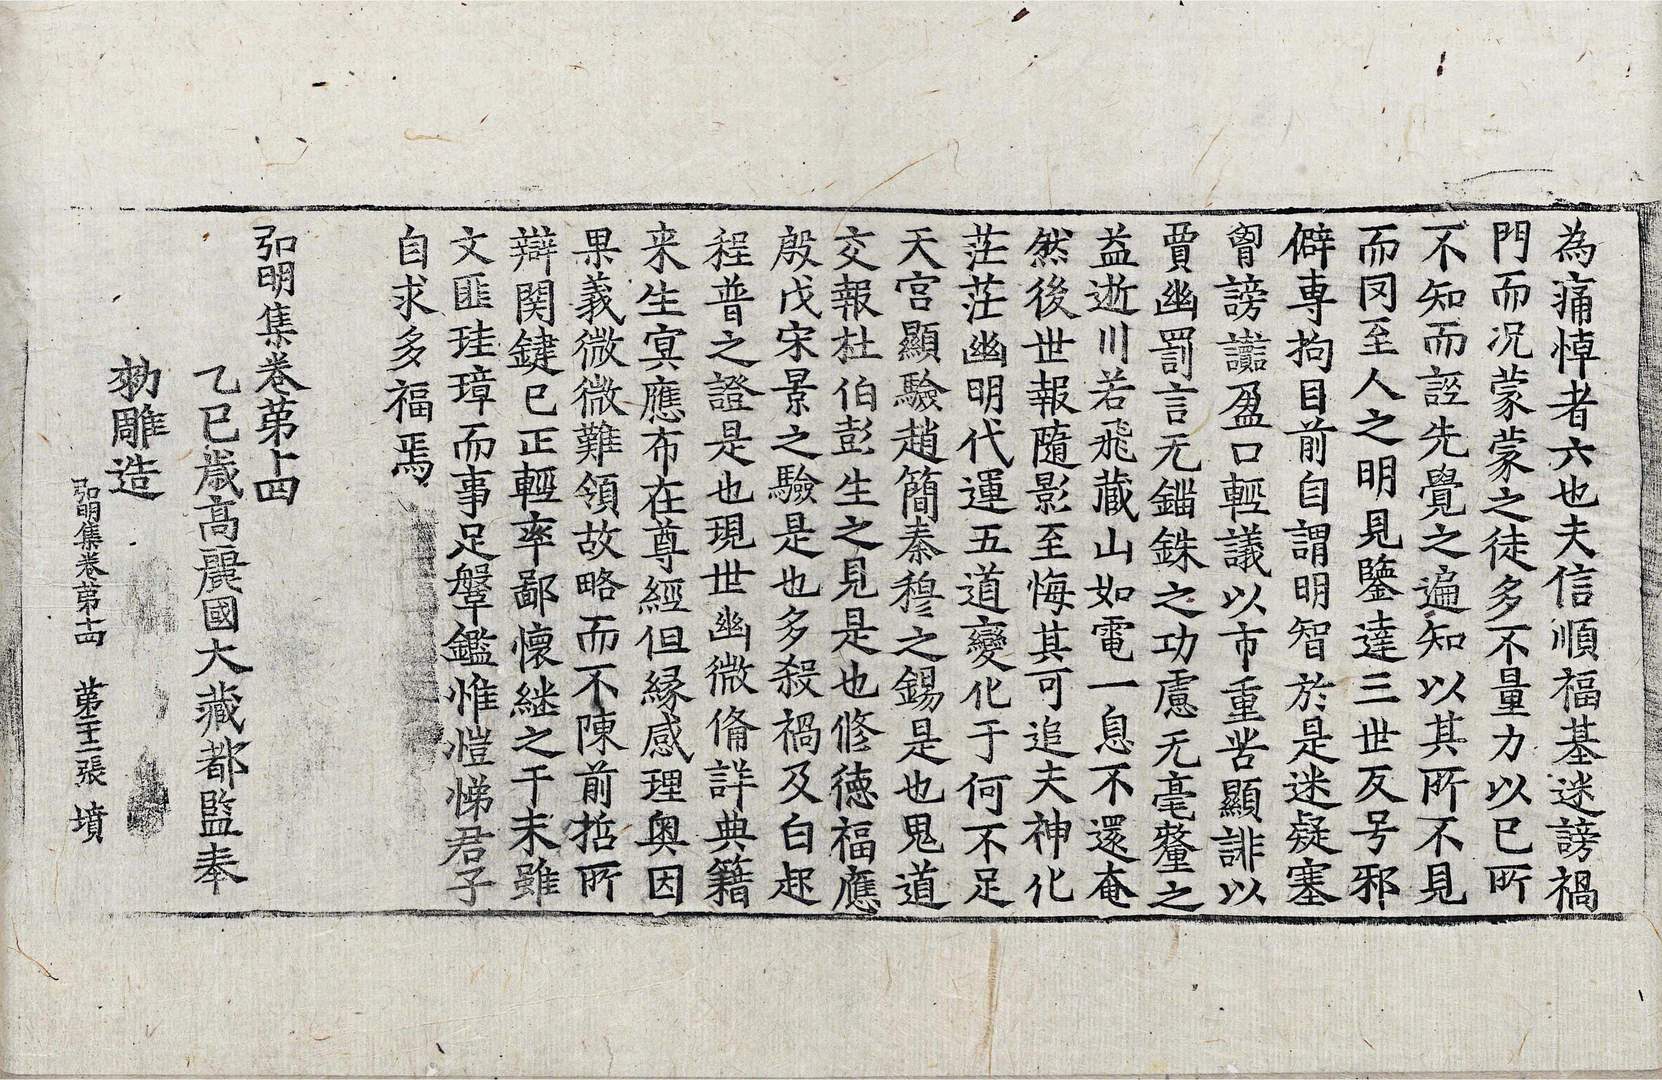 為痛悼者六也夫信順福基迷謗禍
門而況蒙蒙之徒多不量力以已所
不知而誣先覺之遍知以其所不見
而罔至人之明見鑒達三世反号邪
僻専拘目前自謂明智於是迷疑塞
胷謗讟盈口輕議以市重苦顯誹以
賈幽罰言无錙銖之功慮无毫釐之
益逝川若飛藏山如電一息不還奄
然後世報隨影至悔其可追夫神化
茫茫幽明代運五道變化于何不足
天宮顯驗趙簡秦穆之錫是也鬼道
交報杜伯彭生之見是也修德福應
殷戊宋景之驗是也多殺禍及白起
程普之證是也現世幽微俻詳典籍
来生冥應布在尊經但緣感理奥因
果義微微難領故略而不陳前哲所
辯関鍵已正輕率鄙懐継之于末雖
文匪珪璋而事足鞶鑑惟愷悌君子
自求多福焉
弘明集卷第十四
乙巳歳高麗國大藏都監奉
勑雕造
弘明集卷第十四 第二十二張 墳